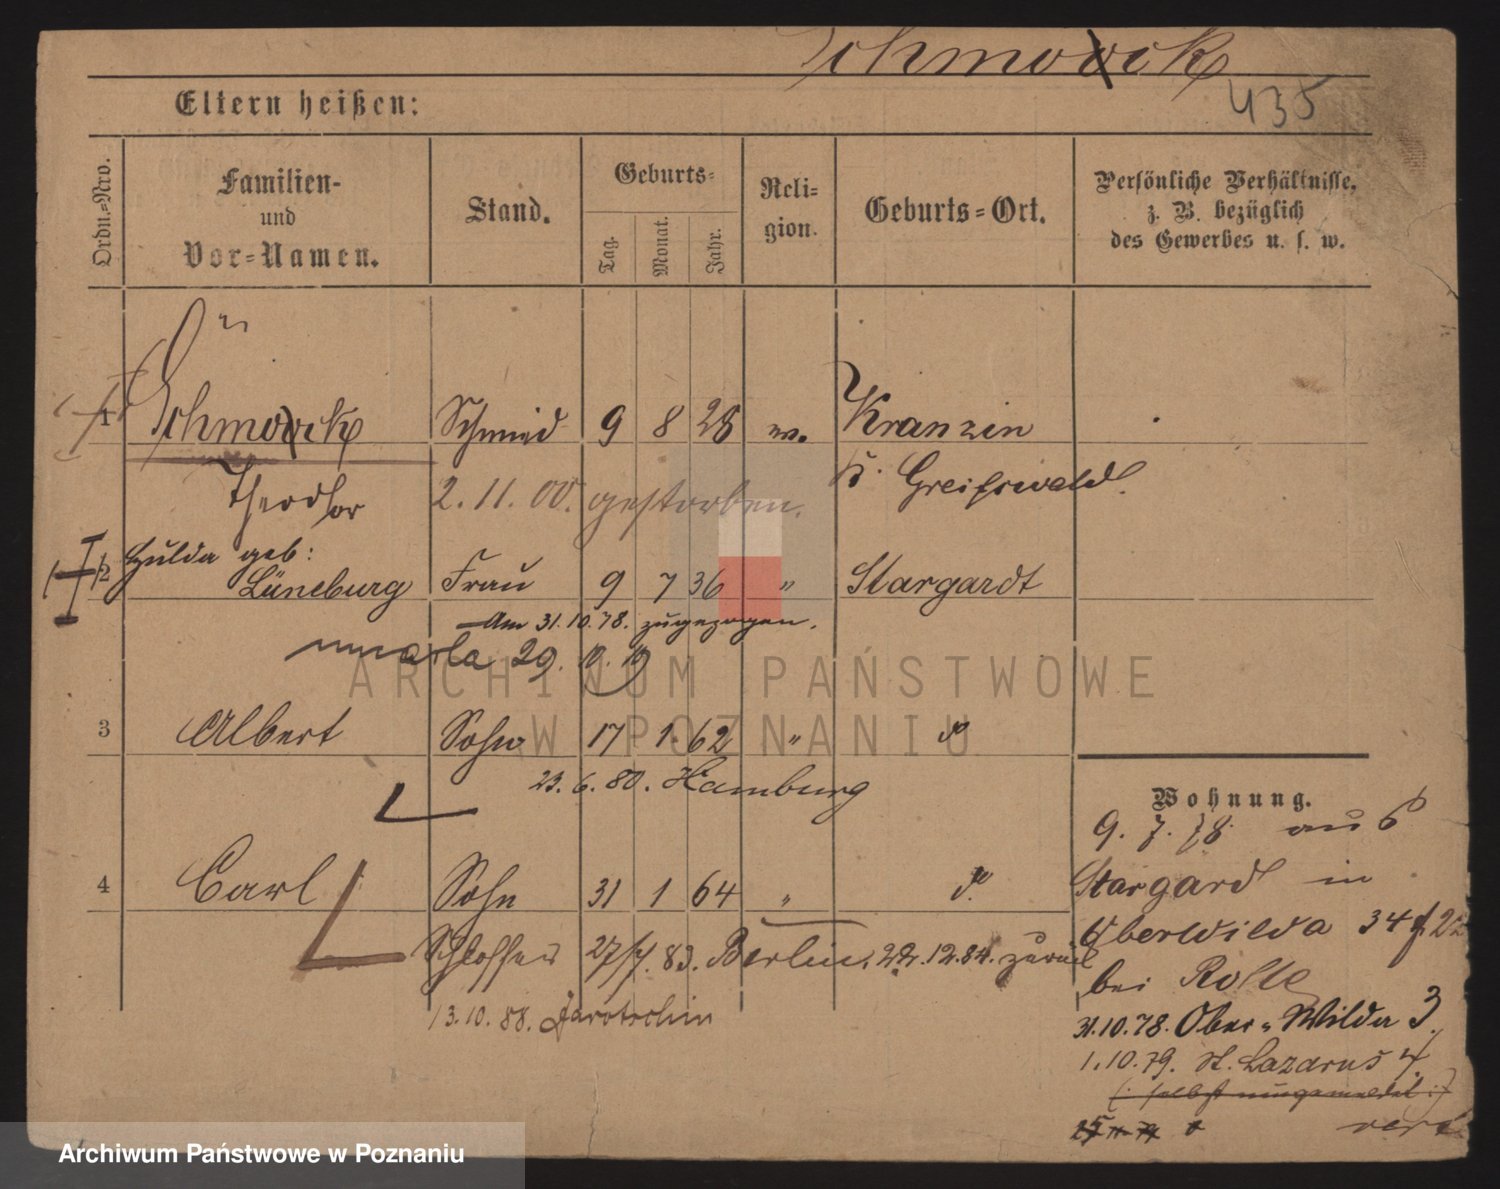 Schmoock
435
Eltern heißen:
Ordn.=Nro.
Familien-
und
Vor=Namen.
Stand.
Geburts=
Tag.
Monat.
Jahr.
Reli=
gion.
Geburts=Ort.
Persönliche Verhältnisse,
z. B. bezüglich
des Gewerbes u. s. w.
1 Schmoock Schmied 9 8 28 ev. Kranzin
Theodor 2.11.00. gestorben. Greifswald.
2 Hulda geb:
Lüneburg Frau 9 7 36 " Stargardt
Am 31.10.78. zugezogen.
umarła 29.10.19
3 Albert Sohn 17 1. 62 " do
23.6.80. Hamburg
4 Carl Sohn 31 1 64 " do.
Schlosser 27/7. 83. Berlin, 22.12.84. zurück
13.10.88. Jarotschin
Wohnung.
9. 7. 78. aus
Stargard in
Oberwilda 34
bei Rolle
31.10.78. Ober-Wilda 3.
1.10.79. St. Lazarus 4.
ARCHIWUM PAŃSTWOWE
W POZNANIU
Archiwum Państwowe w Poznaniu